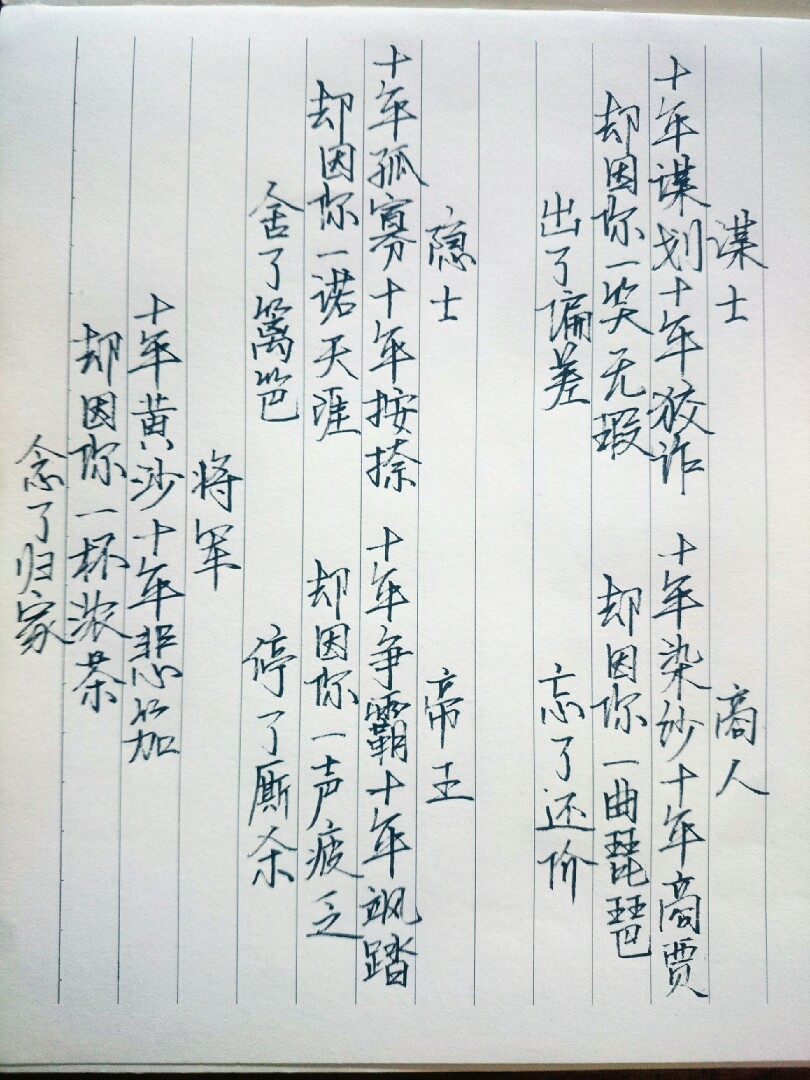 谋士
十年谋划十年狡诈
却因你一笑无瑕
出了偏差
商人
十年染纱十年商贾
却因你一曲琵琶
忘了还价
隐士
十年孤寡十年按捺
却因你一诺天涯
舍了篱笆
帝王
十年争霸十年飒踏
却因你一声疲乏
停了厮杀
将军
十年黄沙十年悲笳
却因你一杯浓茶
念了归家